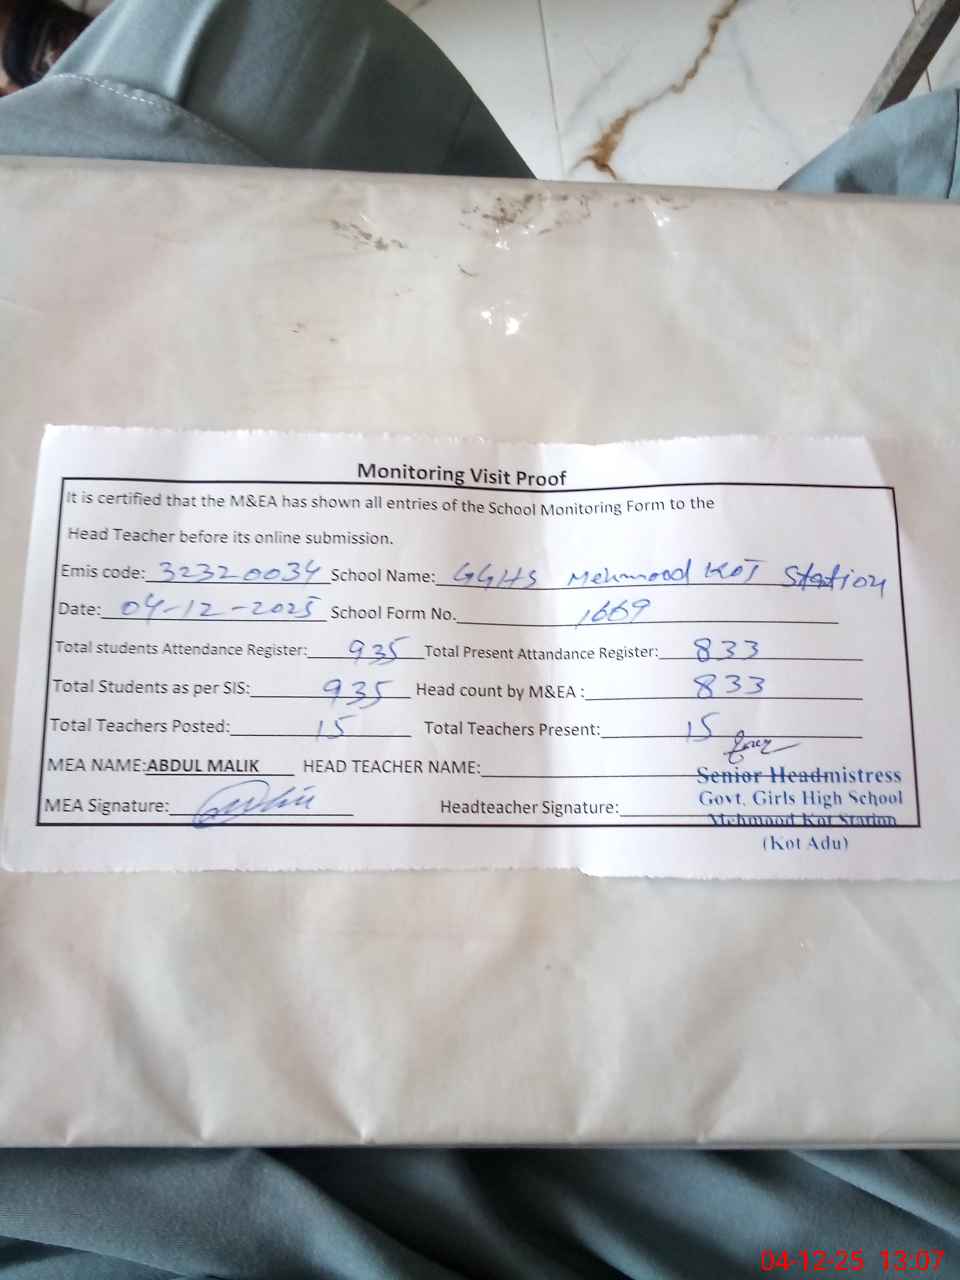 Monitoring Visit Proof
It is certified that the M&EA has shown all entries of the School Monitoring Form to the
Head Teacher before its online submission.
Emis code: 32320034 School Name: GGHS Mehmood KOT Station
Date: 04-12-2025 School Form No. 1669
Total students Attendance Register: 935 Total Present Attandance Register: 833
Total Students as per SIS: 935 Head count by M&EA : 833
Total Teachers Posted: 15 Total Teachers Present: 15
MEA NAME:ABDUL MALIK HEAD TEACHER NAME:
Senior Headmistress
MEA Signature: Headteacher Signature:
Govt. Girls High School
Mehmood Kot Station
(Kot Adu)
04-12-25 13:07